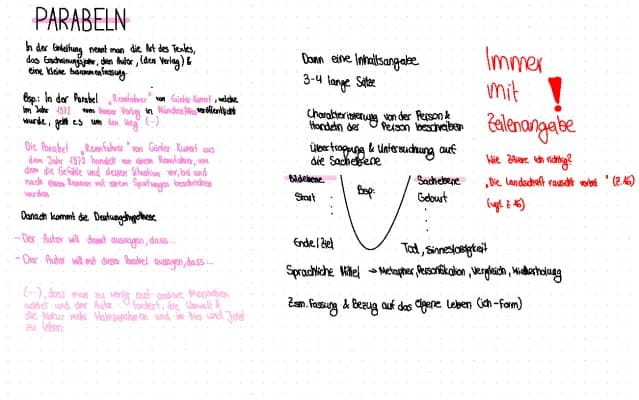 PARABELN
In der Einleitung nennt man die Art des Textes,
das Erscheinungsjahr, den Autor, (den Verlag) &
eine kleine Zusammenfassung.
Bsp.: In der Parabel „Rennfahrer" von Günter Kunert, welche
im Jahr 1972 vom Hanser Verlag in München veröffentlicht
wurde, geht es um den Weg (...)
Die Parabel „Rennfahrer" von Günter Kunert aus
dem Jahr 1972 handelt von einem Rennfahrer, von
dem die Gefühle und dessen Situation vor, bei und
nach einem Rennen mit einem Sportwagen beschrieben
werden
Danach kommt die Deutungshypothese
- Der Autor will damit aussagen, dass...
- Der Autor will mit dieser Parabel aussagen, dass...
(...), dass man zu wenig auf andere Menschen
achtet und der Autor fordert, die Umwelt &
die Natur mehr wahrzunehmen und im Hier und Jetzt
zu leben.
Dann eine Inhaltsangabe
3-4 lange Sätze
Charakterisierung von der Person &
Handeln der Person beschreiben
Übertragung & Untersuchung auf
die Sachebene
Bildebene Bsp: Sachebene
Start Geburt
: :
Ende/Ziel Tod, Sinneslosigkeit
Sprachliche Mittel → Metapher, Personifikation, Vergleich, Wiederholung
Zsm. Fassung & Bezug auf das eigene Leben (ich-Form)
Immer
mit !
Zeilenangabe
Wie zitiere ich richtig?
„Die Landschaft rauscht vorbei" (Z.16)
(vgl. Z.16)